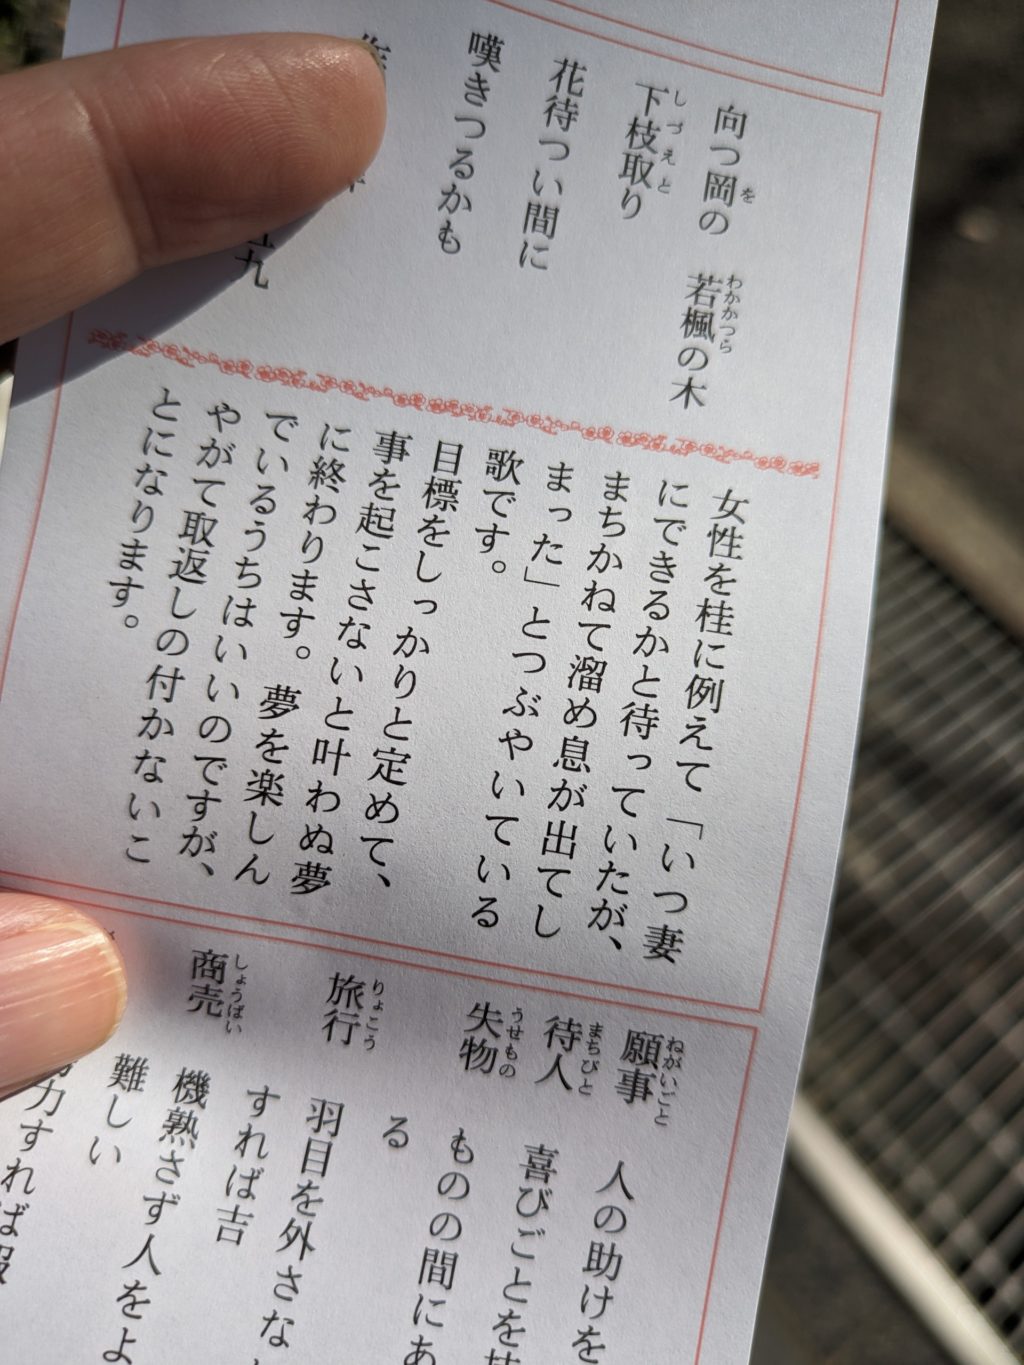 向つ岡の　若楓の木
を
わかかつら
下枝取り
しづえと
花待つい間に
嘆きつるかも
九
女性を桂に例えて「いつ妻
にできるかと待っていたが、
まちかねて溜め息が出てし
まった」とつぶやいている
歌です。
目標をしっかりと定めて、
事を起こさないと叶わぬ夢
に終わります。夢を楽しん
でいるうちはいいのですが、
やがて取返しの付かないこ
とになります。
願事　人の助けを
ねがいごと
待人　喜びごとを
まちびと
失物　ものの間にあ
うせもの
る
旅行　羽目を外さな
りょこう
すれば吉
商売　機熟さず人をよ
しょうばい
難しい
力すれば